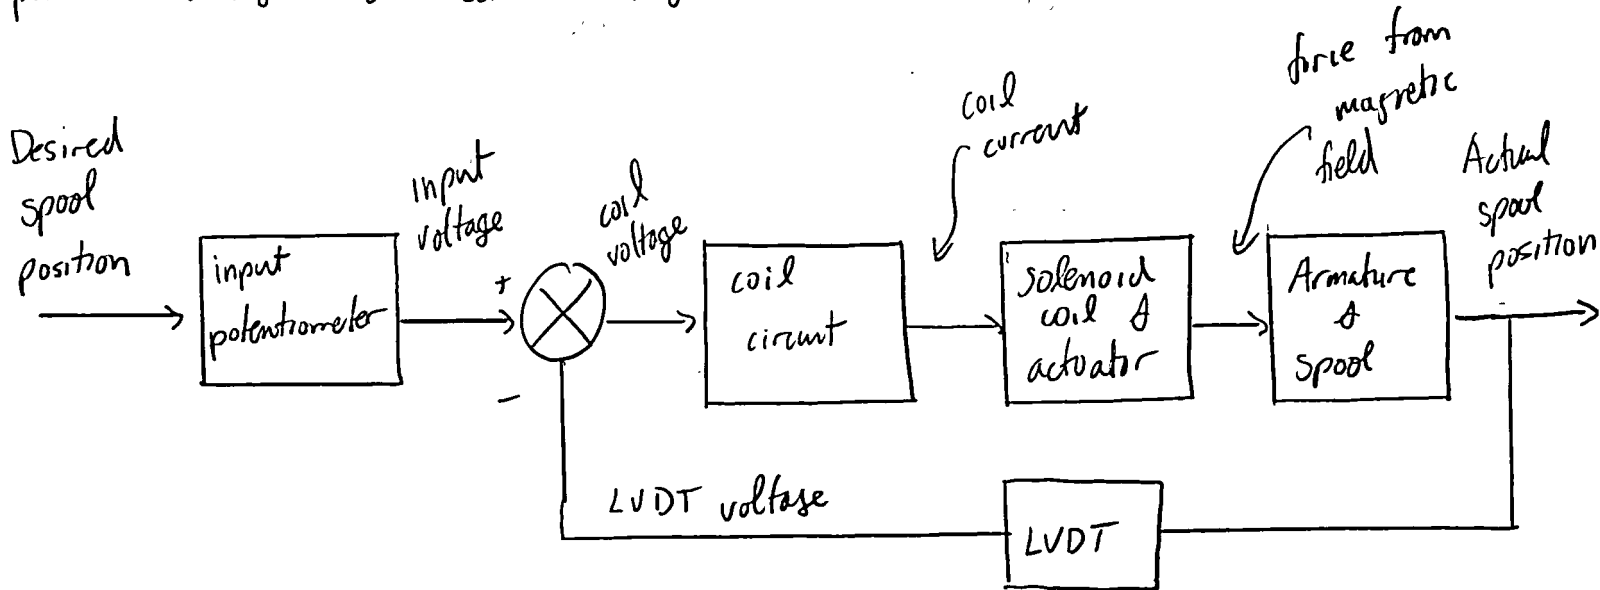 Desired
spool
position
input
potentiometer
input
voltage
+
-
coil
voltage
coil
circuit
coil
current
solenoid
coil &
actuator
force from
magnetic
field
Armature
&
spool
Actual
spool
position
LVDT voltage
LVDT